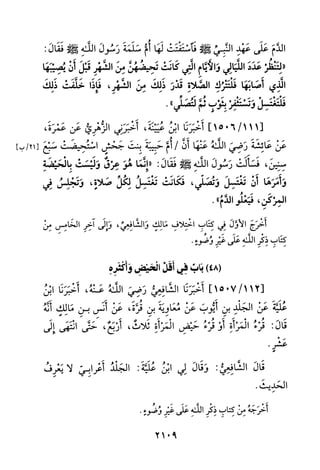 الدَّمَ عَلَى عَهْدِ النَّبِيِّ ﷺ فَاسْتَفْتَتْ لَهَا أُمُّ سَلَمَةَ رَسُولَ اللَّهِ ﷺ فَقَالَ:
«لِتَنْظُرْ عَدَدَ اللَّيَالِي وَالأَيَّامِ الَّتِي كَانَتْ تَحِيضُهُنَّ مِنَ الشَّهْرِ قَبْلَ أَنْ يُصِيبَهَا
الَّذِي أَصَابَهَا فَلْتَتْرُكْ الصَّلاةَ قَدْرَ ذَلِكَ مِنَ الشَّهْرِ، فَإِذَا خَلَّفَتْ ذَلِكَ
فَلْتَغْتَسِلْ ثُمَّ لْتَسْتَثْفِرْ بِثَوْبٍ ثُمَّ لْتُصَلِّي».
[١١١/ ١٥٠٦] أَخْبَرَنَا ابْنُ عُيَيْنَةَ، أَخْبَرَنِي الزُّهْرِيُّ عَن عَمْرَةَ،
عَنْ عَائِشَةَ رَضِيَ اللَّهُ عَنْهَا أَنَّ / أُمَّ حَبِيبَةَ بِنتَ جَحْشٍ اسْتُحِيضَتْ سَبْعَ [٢١/ب]
سِنِينَ، فَسَأَلَتْ رَسُولَ اللَّهِ ﷺ فَقَالَ: «إِنَّمَا هُوَ عِرْقٌ وَلَيْسَتْ بِالْحَيْضَةِ
وَأَمَرَهَا أَنْ تَغْتَسِلَ وَتُصَلِّي، فَكَانَتْ تَغْتَسِلُ لِكُلِّ صَلاةٍ، وَتَجْلِسُ فِي
المِرْكَنِ، فَيَعْلُو الدَّمُ».
أَخْرَجَ الأوَّلَ فِي كِتَابِ اخْتِلافِ مَالِكٍ وَالشَّافِعِيِّ، وَإِلَى آخِرِ الخَامِسِ مِنْ
كِتَابِ ذِكْرِ اللَّهِ عَلَى غَيْرِ وُضُوءٍ.
(٤٨) بَابٌ فِي أَقَلِّ الْحَيْضِ وَأَكْثَرِهِ
[١١٢/ ١٥٠٧] أَخْبَرَنَا الشَّافِعِيُّ رَضِيَ اللَّهُ عَنْهُ، أَخْبَرَنَا ابْنُ
عُلَيَّةَ عَنِ الجَلْدِ بنِ أَيُّوبَ عَنْ مُعَاوِيَةَ بنِ قُرَّةَ، عَنْ أَنَسِ بـنِ مَالِكٍ أَنَّهُ
قَالَ: قُرْءُ الْمَرْأَةِ أَوْ قُرْءُ حَيْضِ الْمَرْأَةِ ثَلاثٌ، أَرْبَعٌ، حَتَّى انْتَهَى إِلَى
عَشْرٍ.
قَالَ الشَّافِعِيُّ: وَقَالَ لِي ابْنُ عُلَيَّةَ: الجَلْدُ أَعْرابِيّ لا يَعْرِفُ
الحَدِيثَ.
أَخْرَجَهُ مِنْ كِتابِ ذِكْرِ اللَّهِ عَلَى غَيْرِ وُضُوءٍ.
٢١٠٩